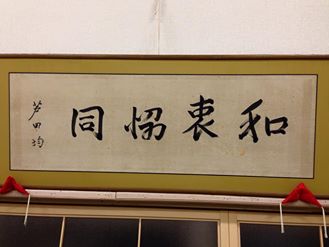 和衷恊同
芦田均